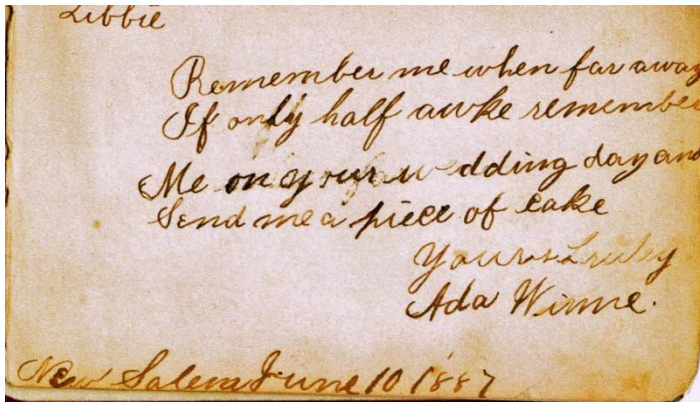 Libbie
Remember me when far away
If only half awke remember
Me on your wedding day and
Send me a piece of cake
Yours truly
Ada Winne.
New Salem June 10 1887